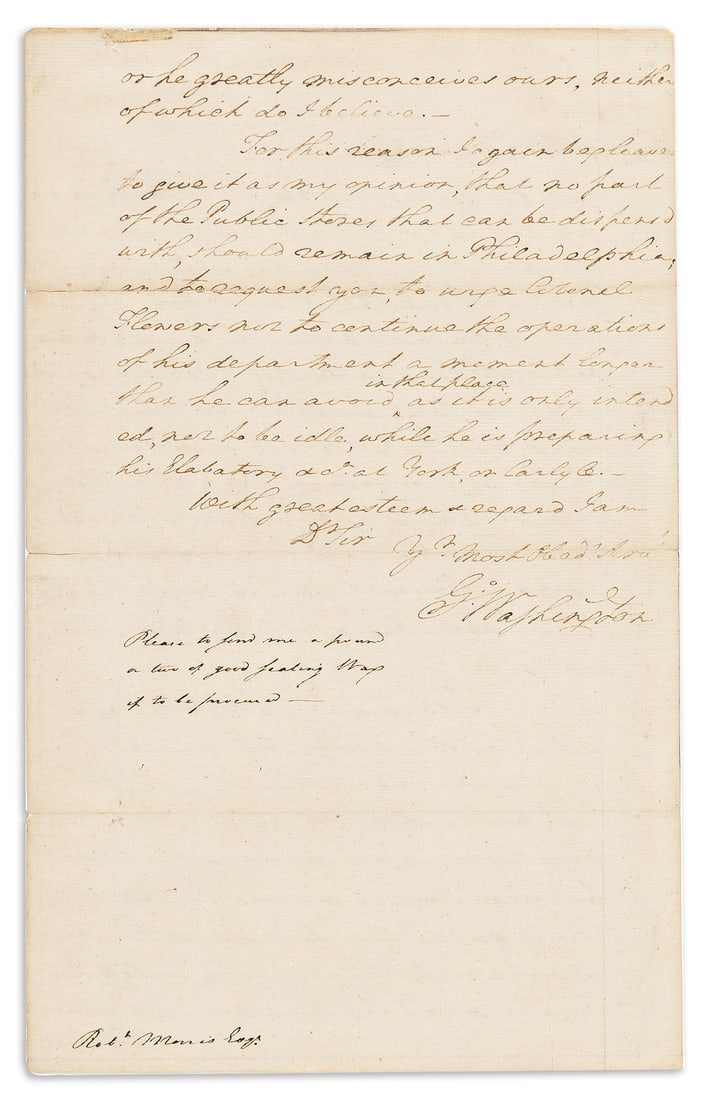 or he greatly misconceives ours, neither
of which do I believe.—
For this reason I again beg leave
to give it as my opinion, that no part
of the Public Stores that can be dispens'd
with, should remain in Philadelphia,
and to request you, to urge Colonel
Flowers not to continue the operations
of his department a moment longer
in that place
than he can avoid ‸ as it is only intend
ed, not to be idle, while he is preparing
his Elabatory &ca. at York, or Carlyle.—
With great esteem & regard I am
Dr Sir
Yr. Most Obedt Servt
Go: Washington
Please to send me a pound
or two of good sealing Wax
if to be procured —
Robt. Morris Esqr.